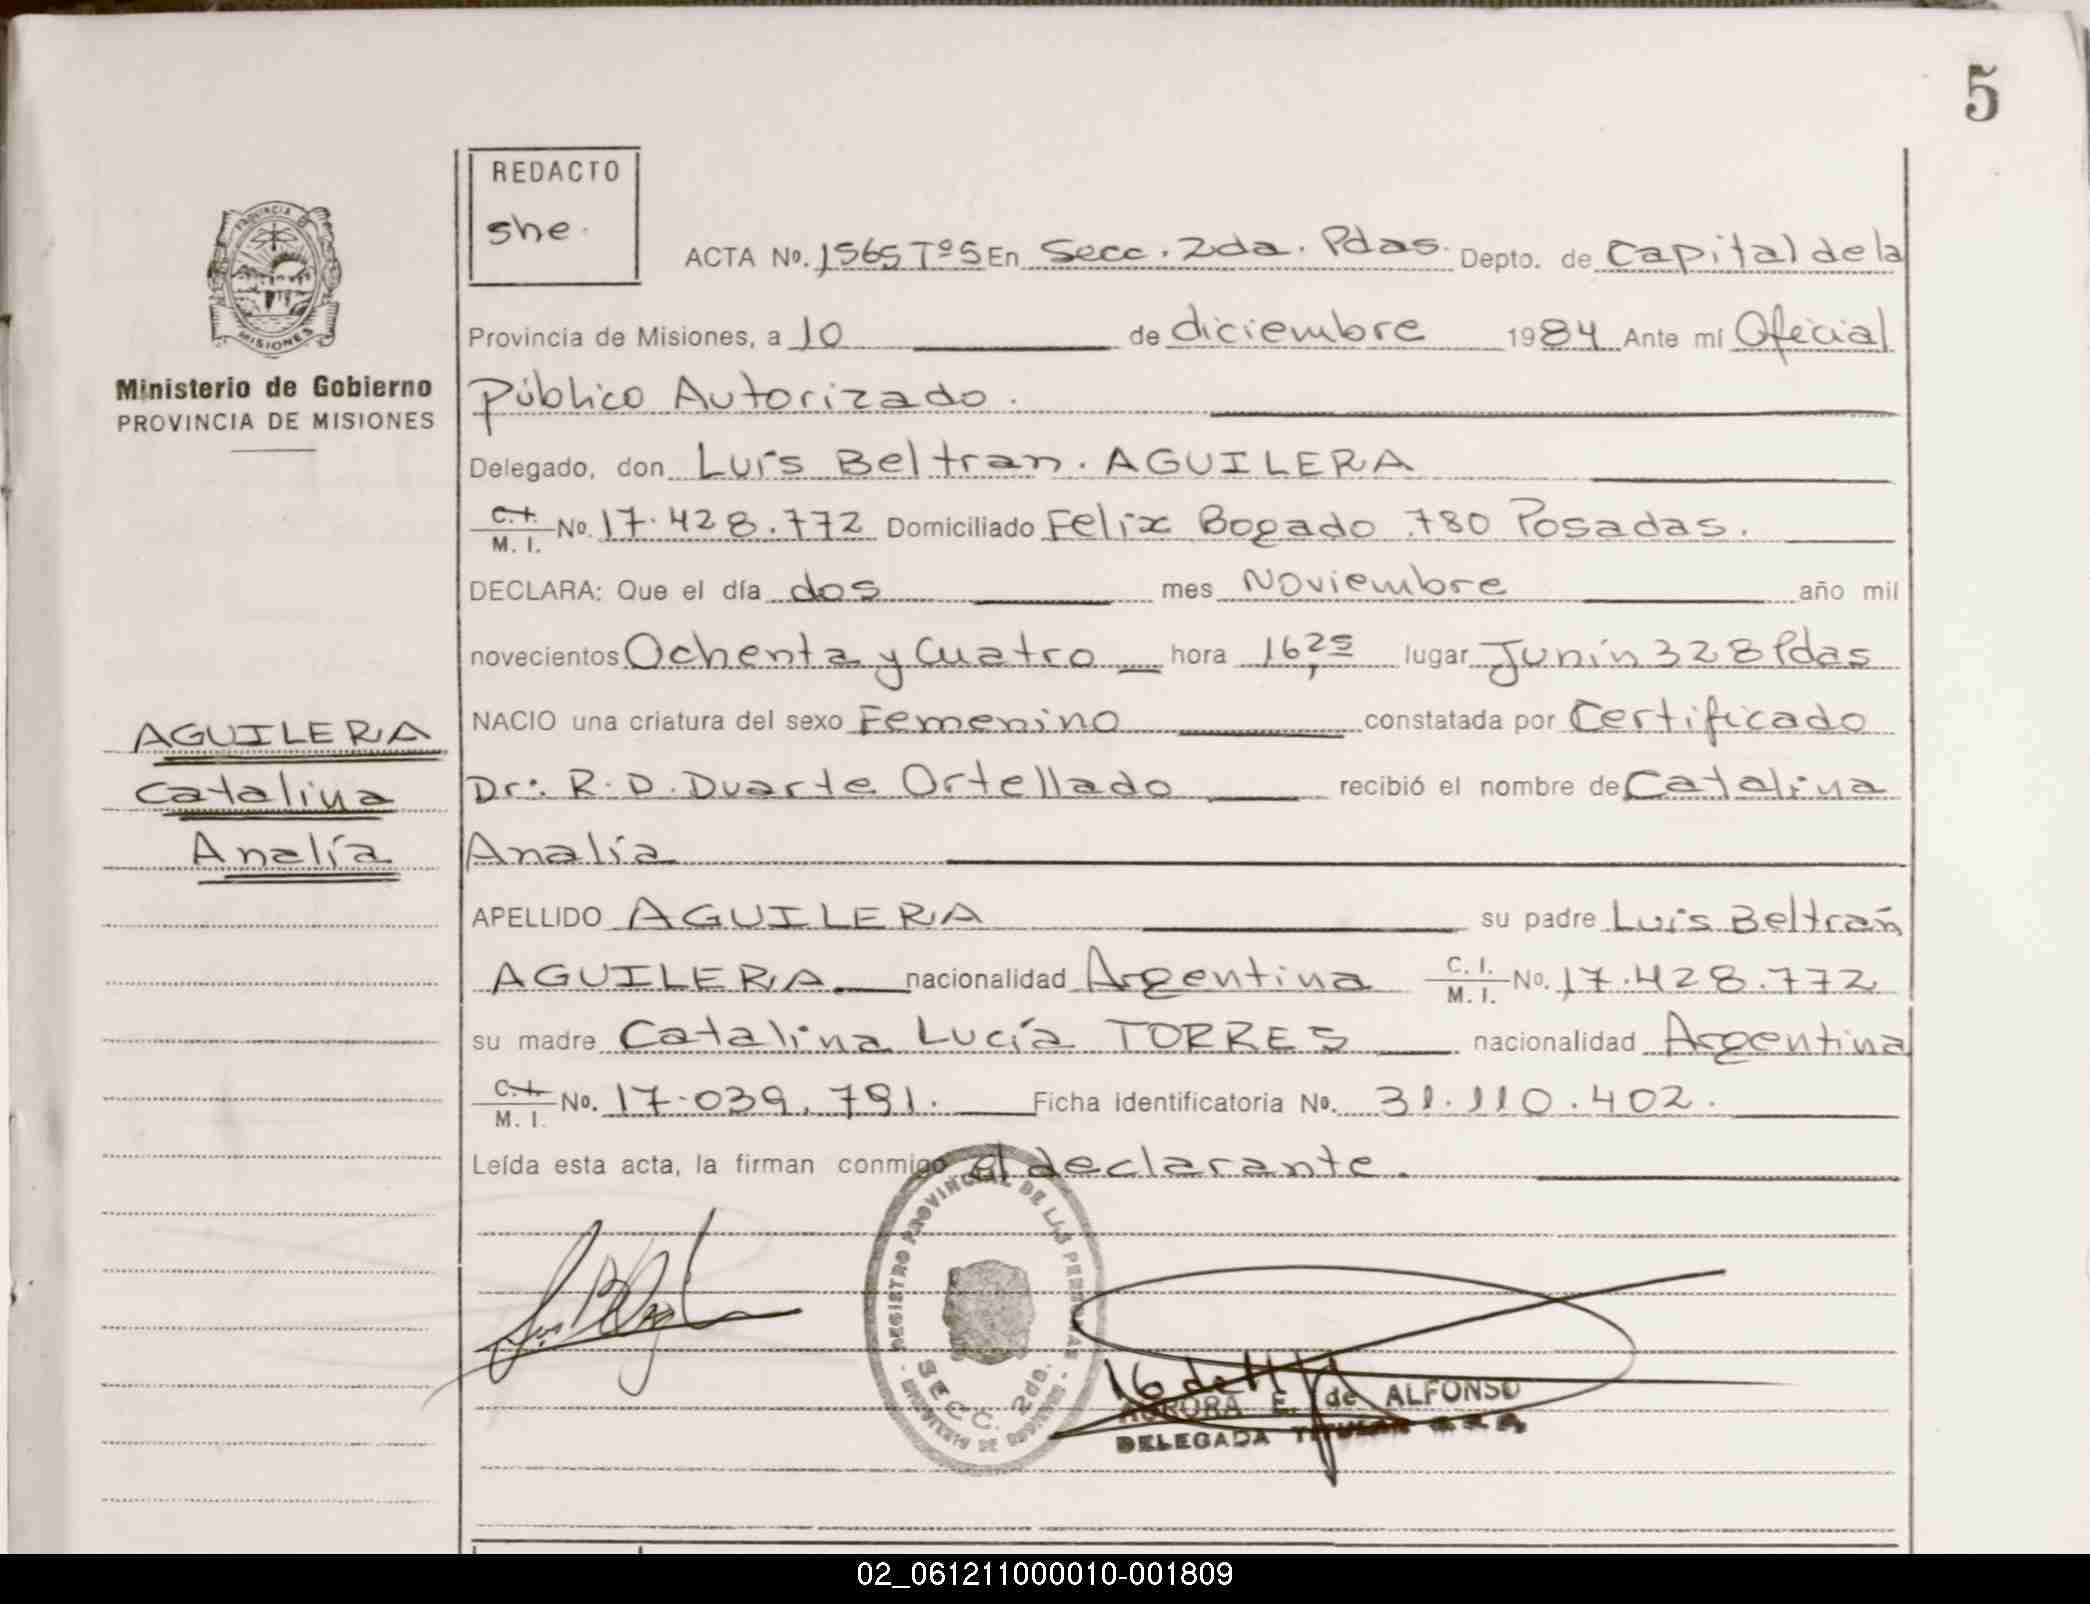 5
REDACTO
she.
ACTA No. 1565 Tº5 En Secc. 2da. Pdas. Depto. de Capital de la
Provincia de Misiones, a 10 de diciembre 1984 Ante mí Oficial
Público Autorizado.
Delegado, don Luis Beltran. AGUILERA
C.I. M. I. No. 17.428.772 Domiciliado Felix Bogado 780 Posadas.
DECLARA: Que el día dos mes Noviembre año mil
novecientos Ochenta y Cuatro hora lugar Junín 328 Pdas
NACIO una criatura del sexo Femenino constatada por Certificado
Dr: R. D. Duarte Ortellado recibió el nombre de Catalina
Analía
APELLIDO AGUILERA su padre Luis Beltrán
AGUILERA nacionalidad Argentina C. I. M. I. No. 17.428.772
su madre Catalina Lucía TORRES nacionalidad Argentina
C.I. M. I. No. 17.039.791. Ficha identificatoria No. 31.110.402.
Leída esta acta, la firman conmigo el declarante.
PROVINCIA DE
MISIONES
Ministerio de Gobierno
PROVINCIA DE MISIONES
AGUILERA
Catalina
Analía
REGISTRO PROVINCIAL DE LAS PERSONAS
SECC. 2da.
AURORA E. de ALFONSO
DELEGADA TITULAR
02_061211000010-001809